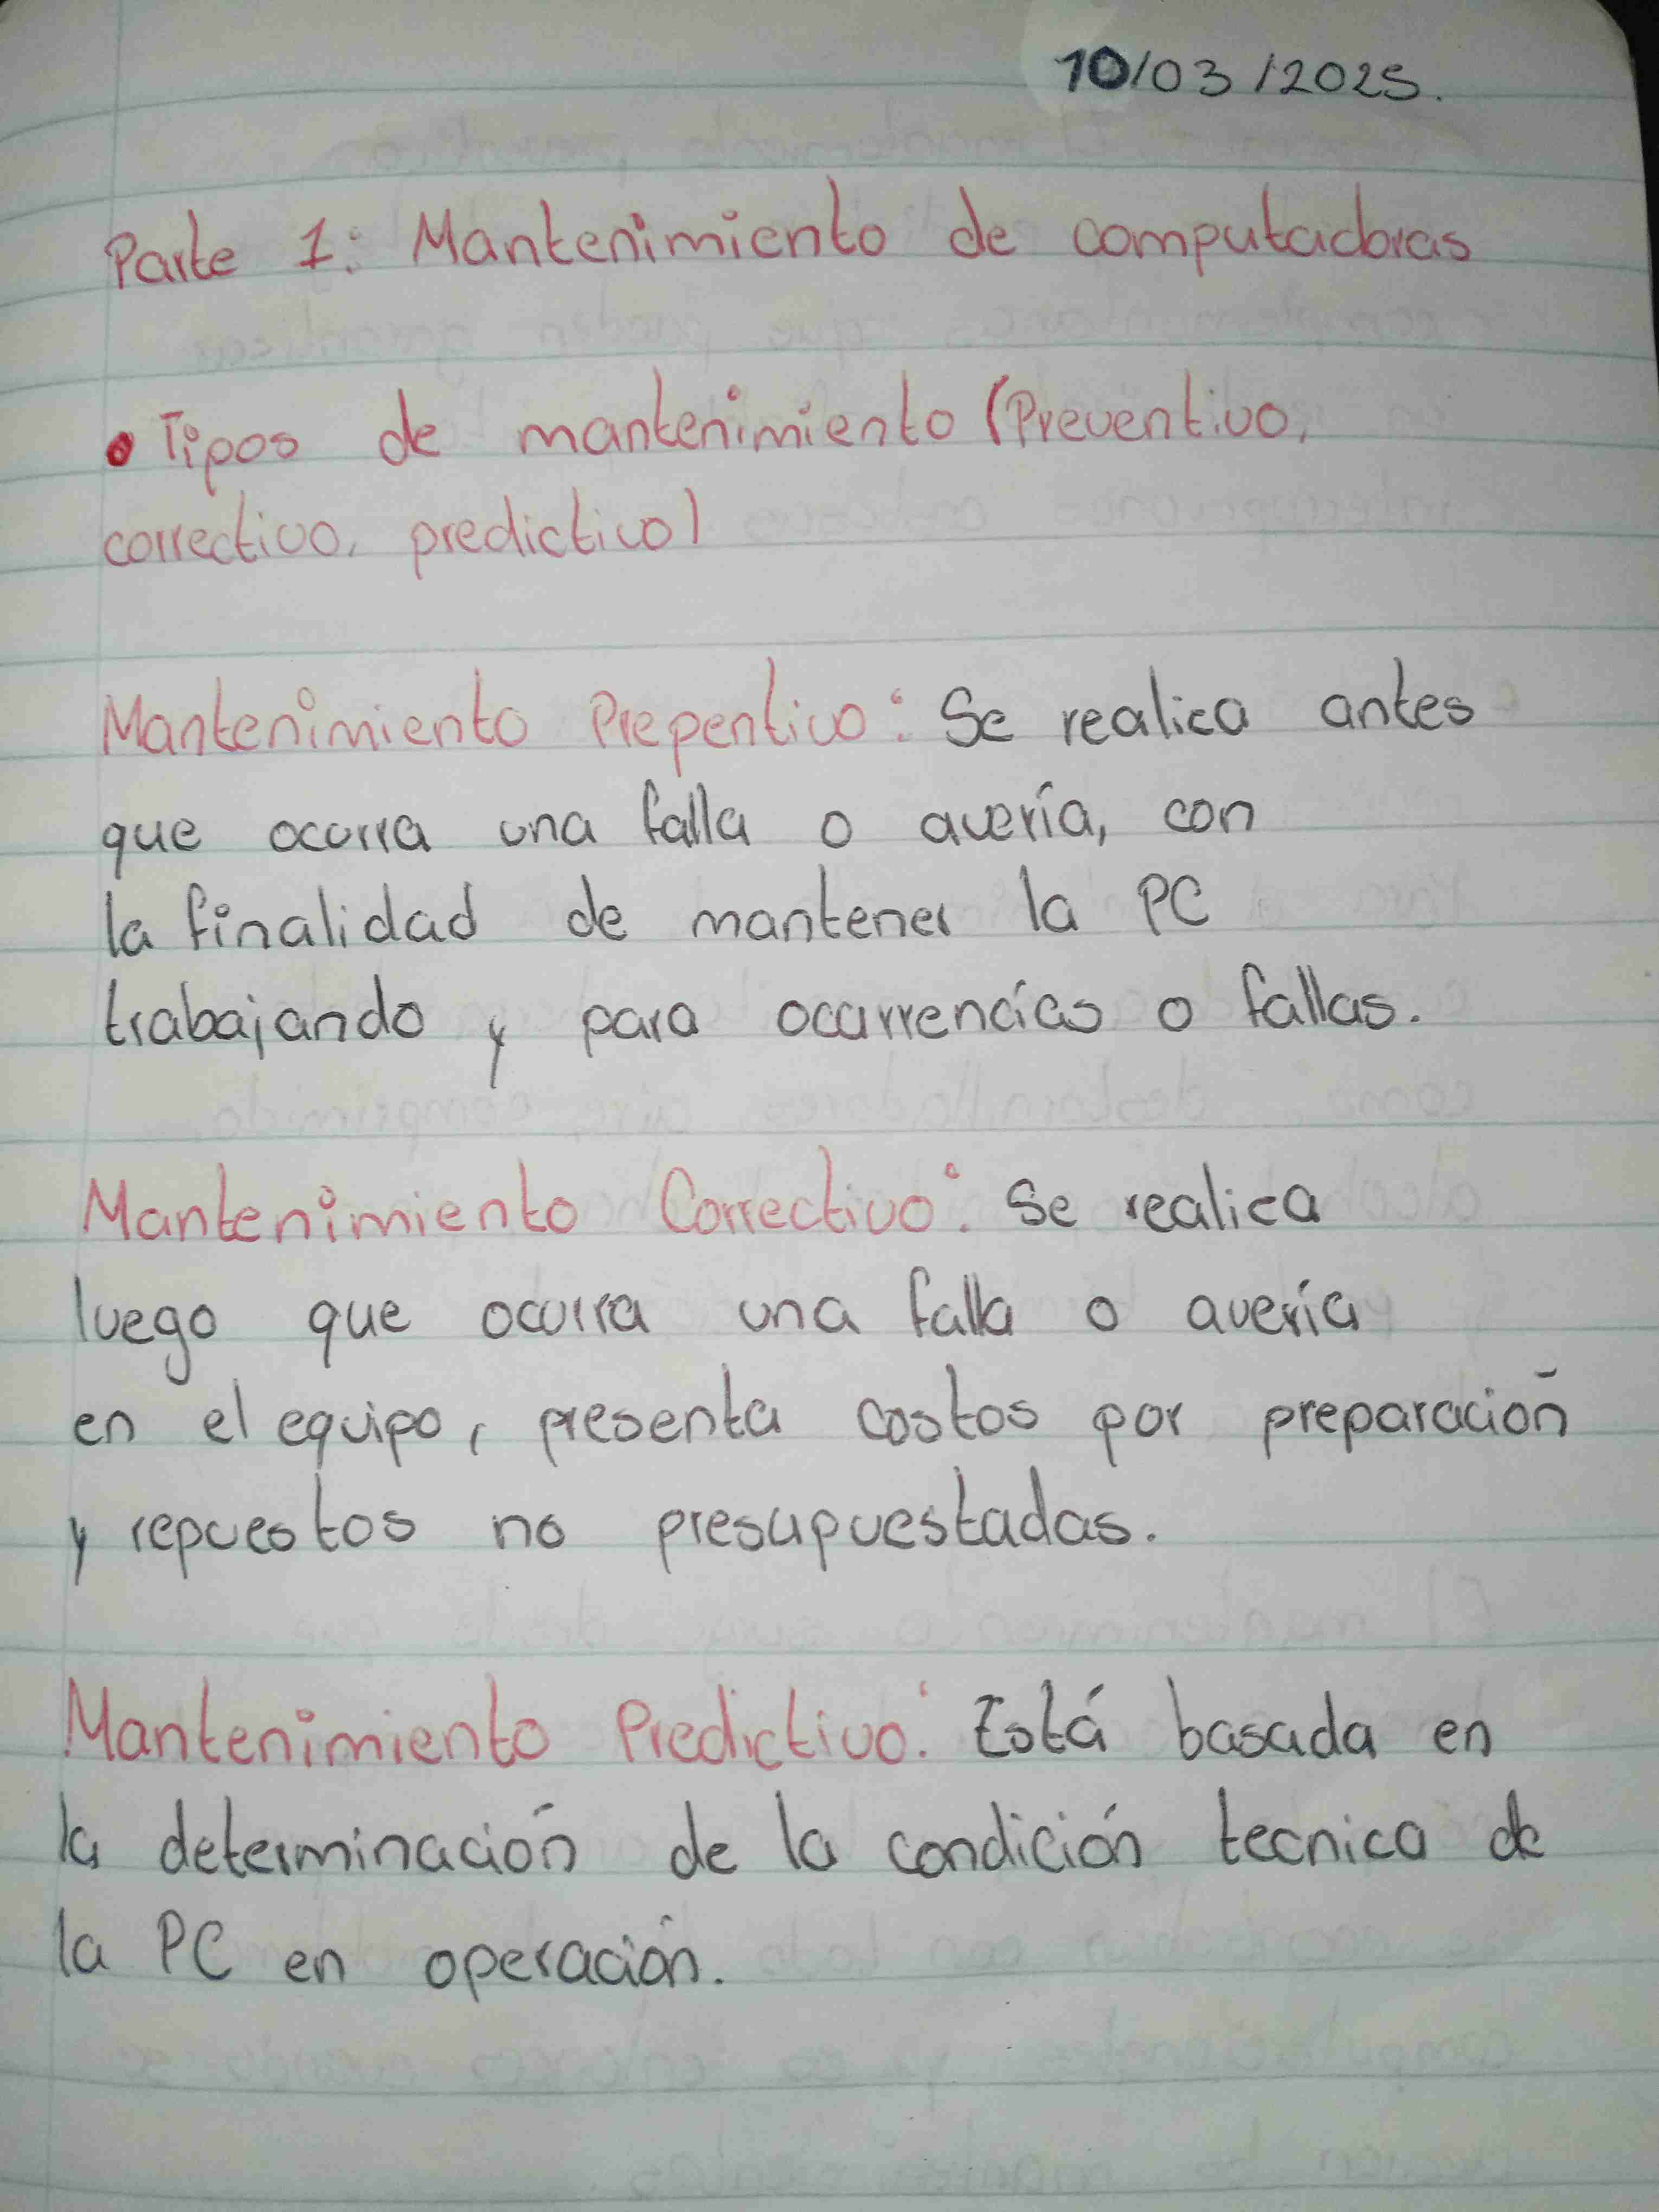 10/03/2025.
Parte 1: Mantenimiento de computadoras
• Tipos de mantenimiento (Preventivo,
correctivo, predictivo)
Mantenimiento Prepentivo: Se realica antes
que ocurra una falla o avería, con
la finalidad de mantener la PC
trabajando y para ocurrencías o fallas.
Mantenimiento Correctivo: Se realica
luego que ocurra una falla o avería
en el equipo, presenta costos por preparación
y repuestos no presupuestadas.
Mantenimiento Predictivo: Está basada en
la determinación de la condición tecnica de
la PC en operación.